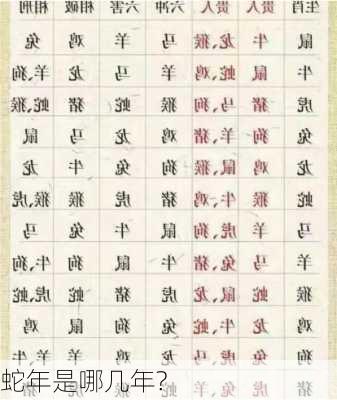 生肖 贵人 贵人 六冲 六害 相破 相刑
鼠 牛 龙、猴 马 羊 鸡 兔
牛 鼠 蛇、鸡 羊 马 龙 羊、狗
虎 猪 马、狗 猴 蛇 猪 蛇、猴
兔 狗 羊、猪 鸡 龙 马 鼠
龙 鸡 鼠、猴 狗 兔 牛 龙
蛇 猴 牛、鸡 猪 虎 猴 虎、猴
马 羊 虎、狗 鼠 牛 兔 马
羊 马 兔、猪 牛 鼠 狗 牛、狗
猴 蛇 鼠、龙 虎 猪 蛇 虎、蛇
鸡 龙 牛、蛇 兔 狗 鼠 鸡
狗 兔 虎、马 龙 鸡 羊 牛、羊
蛇年是哪几年?